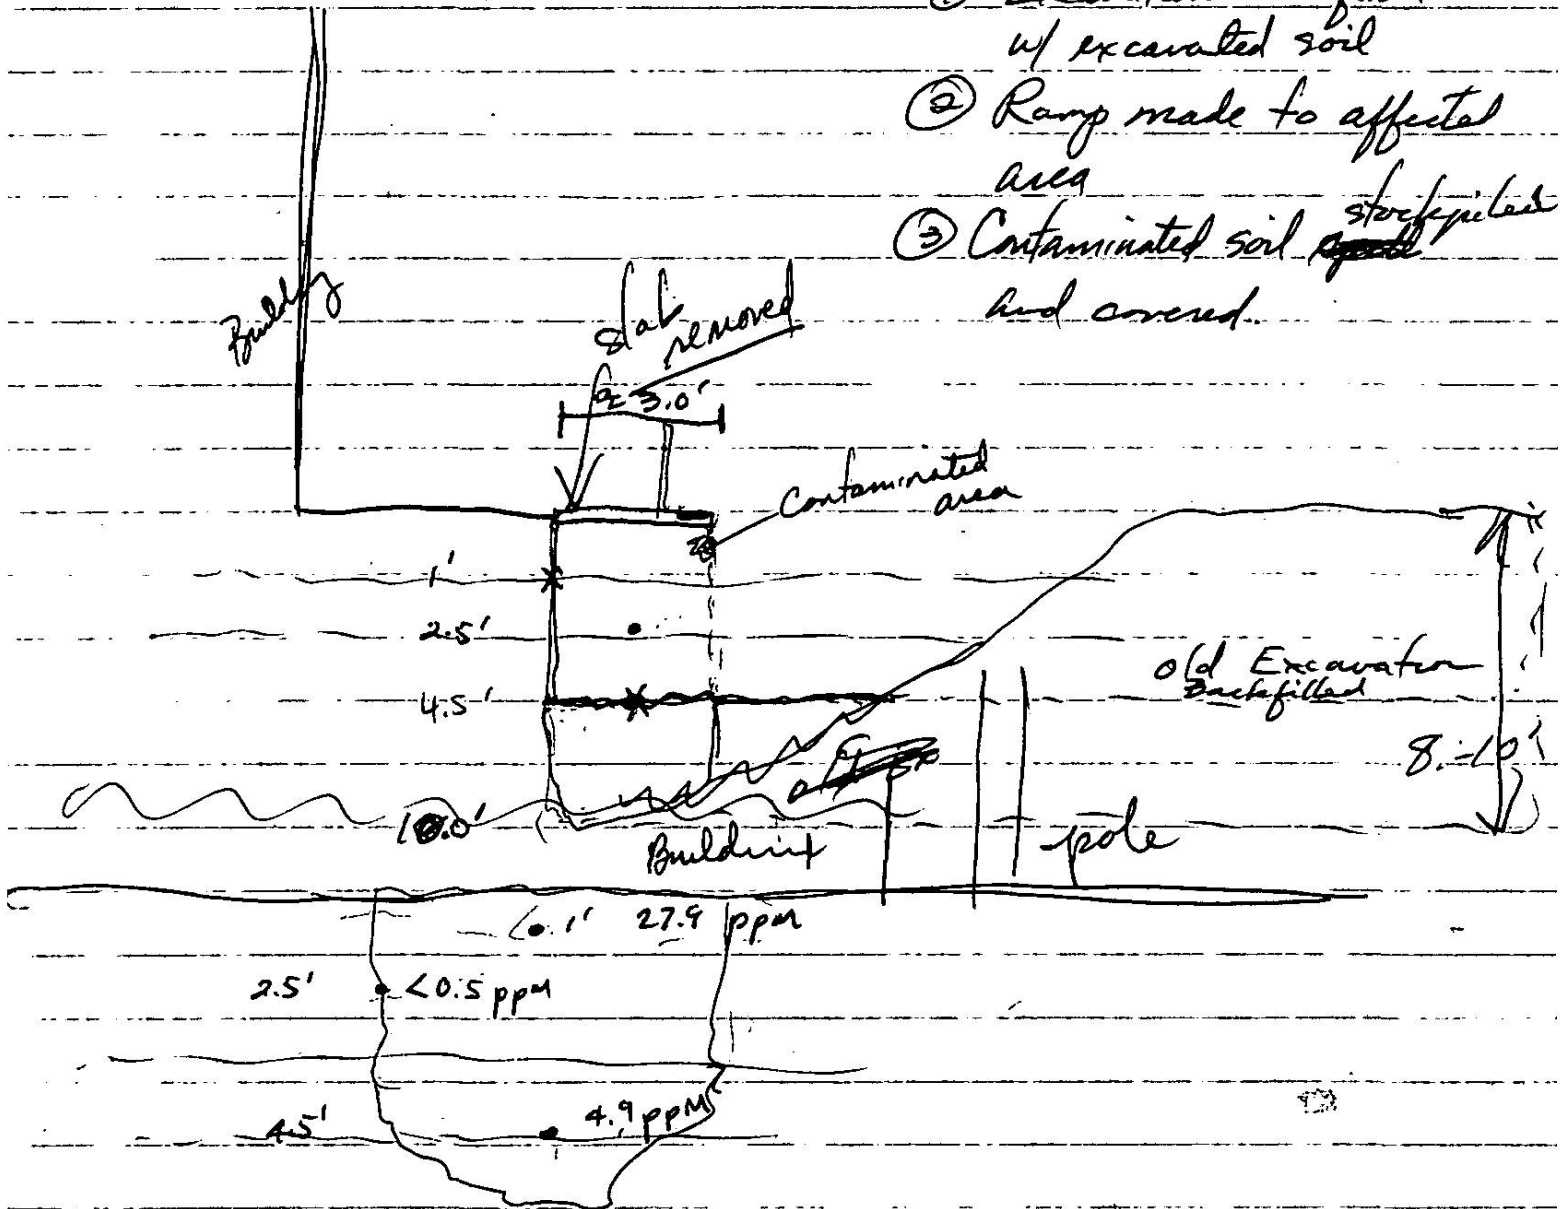 ①
w/ excavated soil
② Ramp made to affected
area
③ Contaminated soil stockpiled
and covered.
Building
slab
removed
≈ 3.0'
Contaminated
area
1'
2.5'
4.5'
old Excavation
Backfilled
8.-10'
Building
pole
27.9 ppm
2.5' <0.5 ppm
4.5' 4.9 ppM